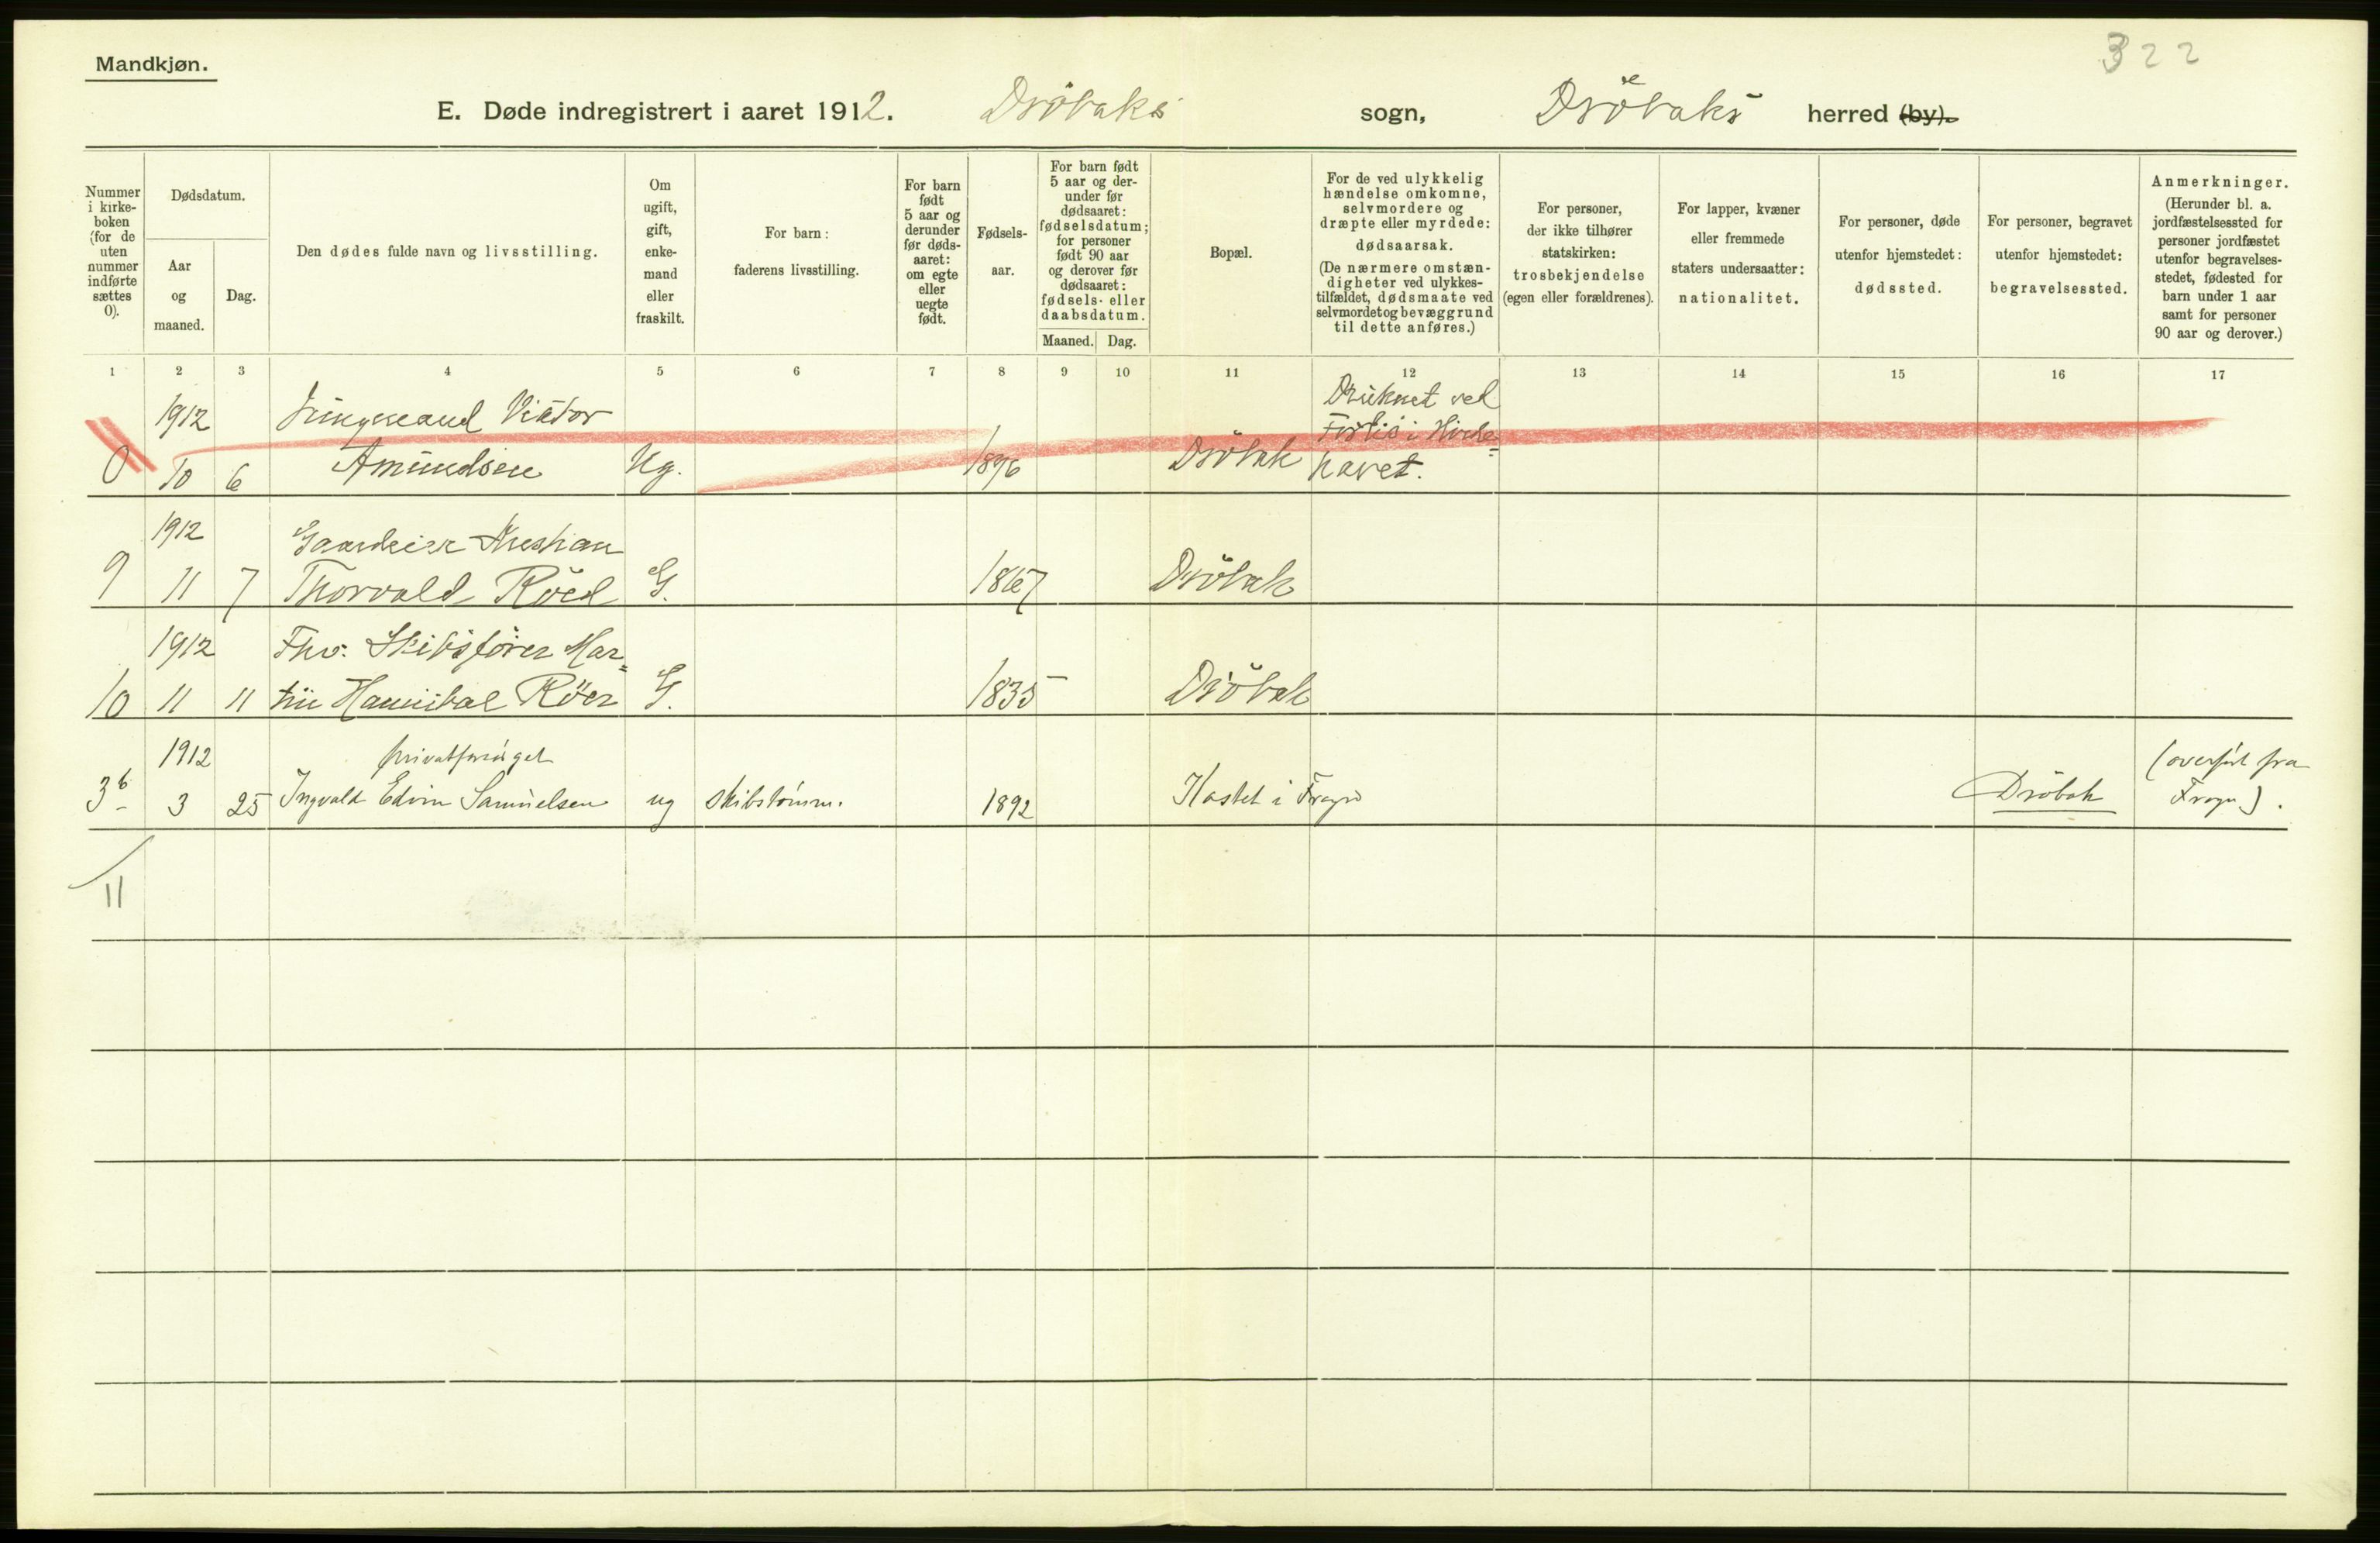 322
Mandkjøn.
E. Døde indregistrert i aaret 1912. Drøbaks sogn, Drøbaks herred (by).
Nummer i kirkeboken (for de uten nummer indførte sættes 0).
Dødsdatum.
Aar og maaned.
Dag.
Den dødes fulde navn og livsstilling.
Om ugift, gift, enkemand eller fraskilt.
For barn: faderens livsstilling.
For barn født 5 aar og derunder før dødsaaret: om egte eller uegte født.
Fødselsaar.
For barn født 5 aar og derunder før dødsaaret: fødselsdatum; for personer født 90 aar og derover før dødsaaret: fødsels- eller daabsdatum.
Maaned. Dag.
Bopæl.
For de ved ulykkelig hændelse omkomne, selvmordere og dræpte eller myrdede: dødsaarsak. (De nærmere omstændigheter ved ulykkestilfældet, dødsmaate ved selvmordet og bevæggrund til dette anføres.)
For personer, der ikke tilhører statskirken: trosbekjendelse (egen eller forældrenes).
For lapper, kvæner eller fremmede staters undersaatter: nationalitet.
For personer, døde utenfor hjemstedet: dødssted.
For personer, begravet utenfor hjemstedet: begravelsessted.
Anmerkninger. (Herunder bl. a. jordfæstelsessted for personer jordfæstet utenfor begravelsesstedet, fødested for barn under 1 aar samt for personer 90 aar og derover.)
1 2 3 4 5 6 7 8 9 10 11 12 13 14 15 16 17
1912 Jungmand Viktor Druknet ved
Forlis i
0 10 6 Amundsen Ug. 1896 Drøbak havet.
1912 Gaardeier Kristian
9 11 7 Thorvald Røed G. 1867 Drøbak
1912 Fhv. Skibsfører Mar=
10 11 11 tin Hannibal Røer G. 1835 Drøbak
1912 privatforsørget (overført fra
3b 3 25 Ingvald Edvin Samuelsen ug skibstømm. 1892 Kastet i Frogn Drøbak Frogn).
11